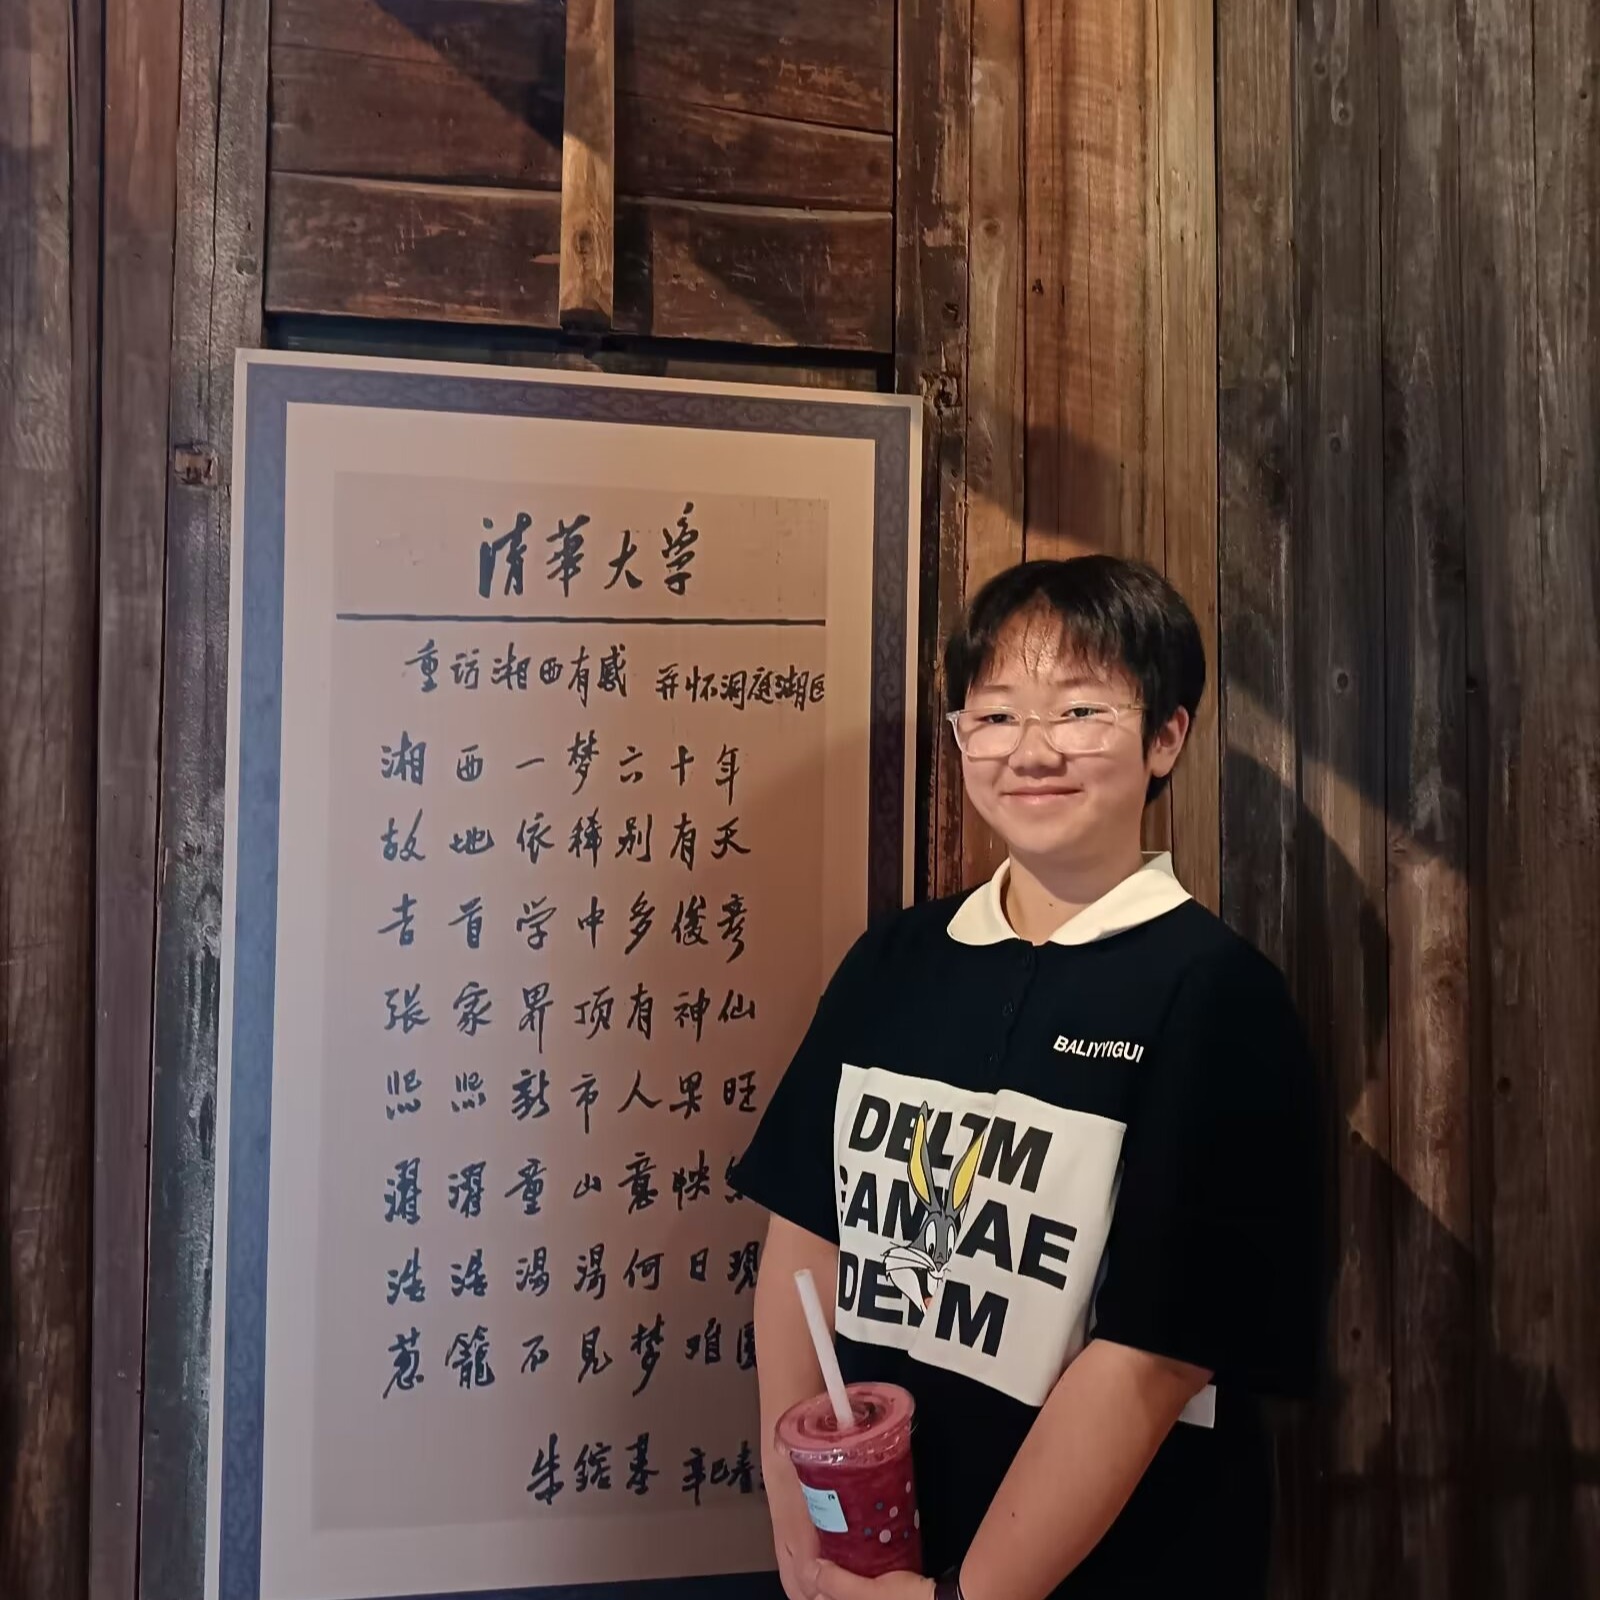 清華大学
重访湘西有感 并怀洞庭湖区
湘西一梦六十年
故地依稀别有天
吉首学中多俊彦
张家界顶有神仙
熙熙新市人果旺
濯濯童山意怏
浩浩湯湯何日現
葱籠不見梦难圆
朱鎔基 辛巳春
BALIYYIGUI
DELTM
GAMAE
DELM